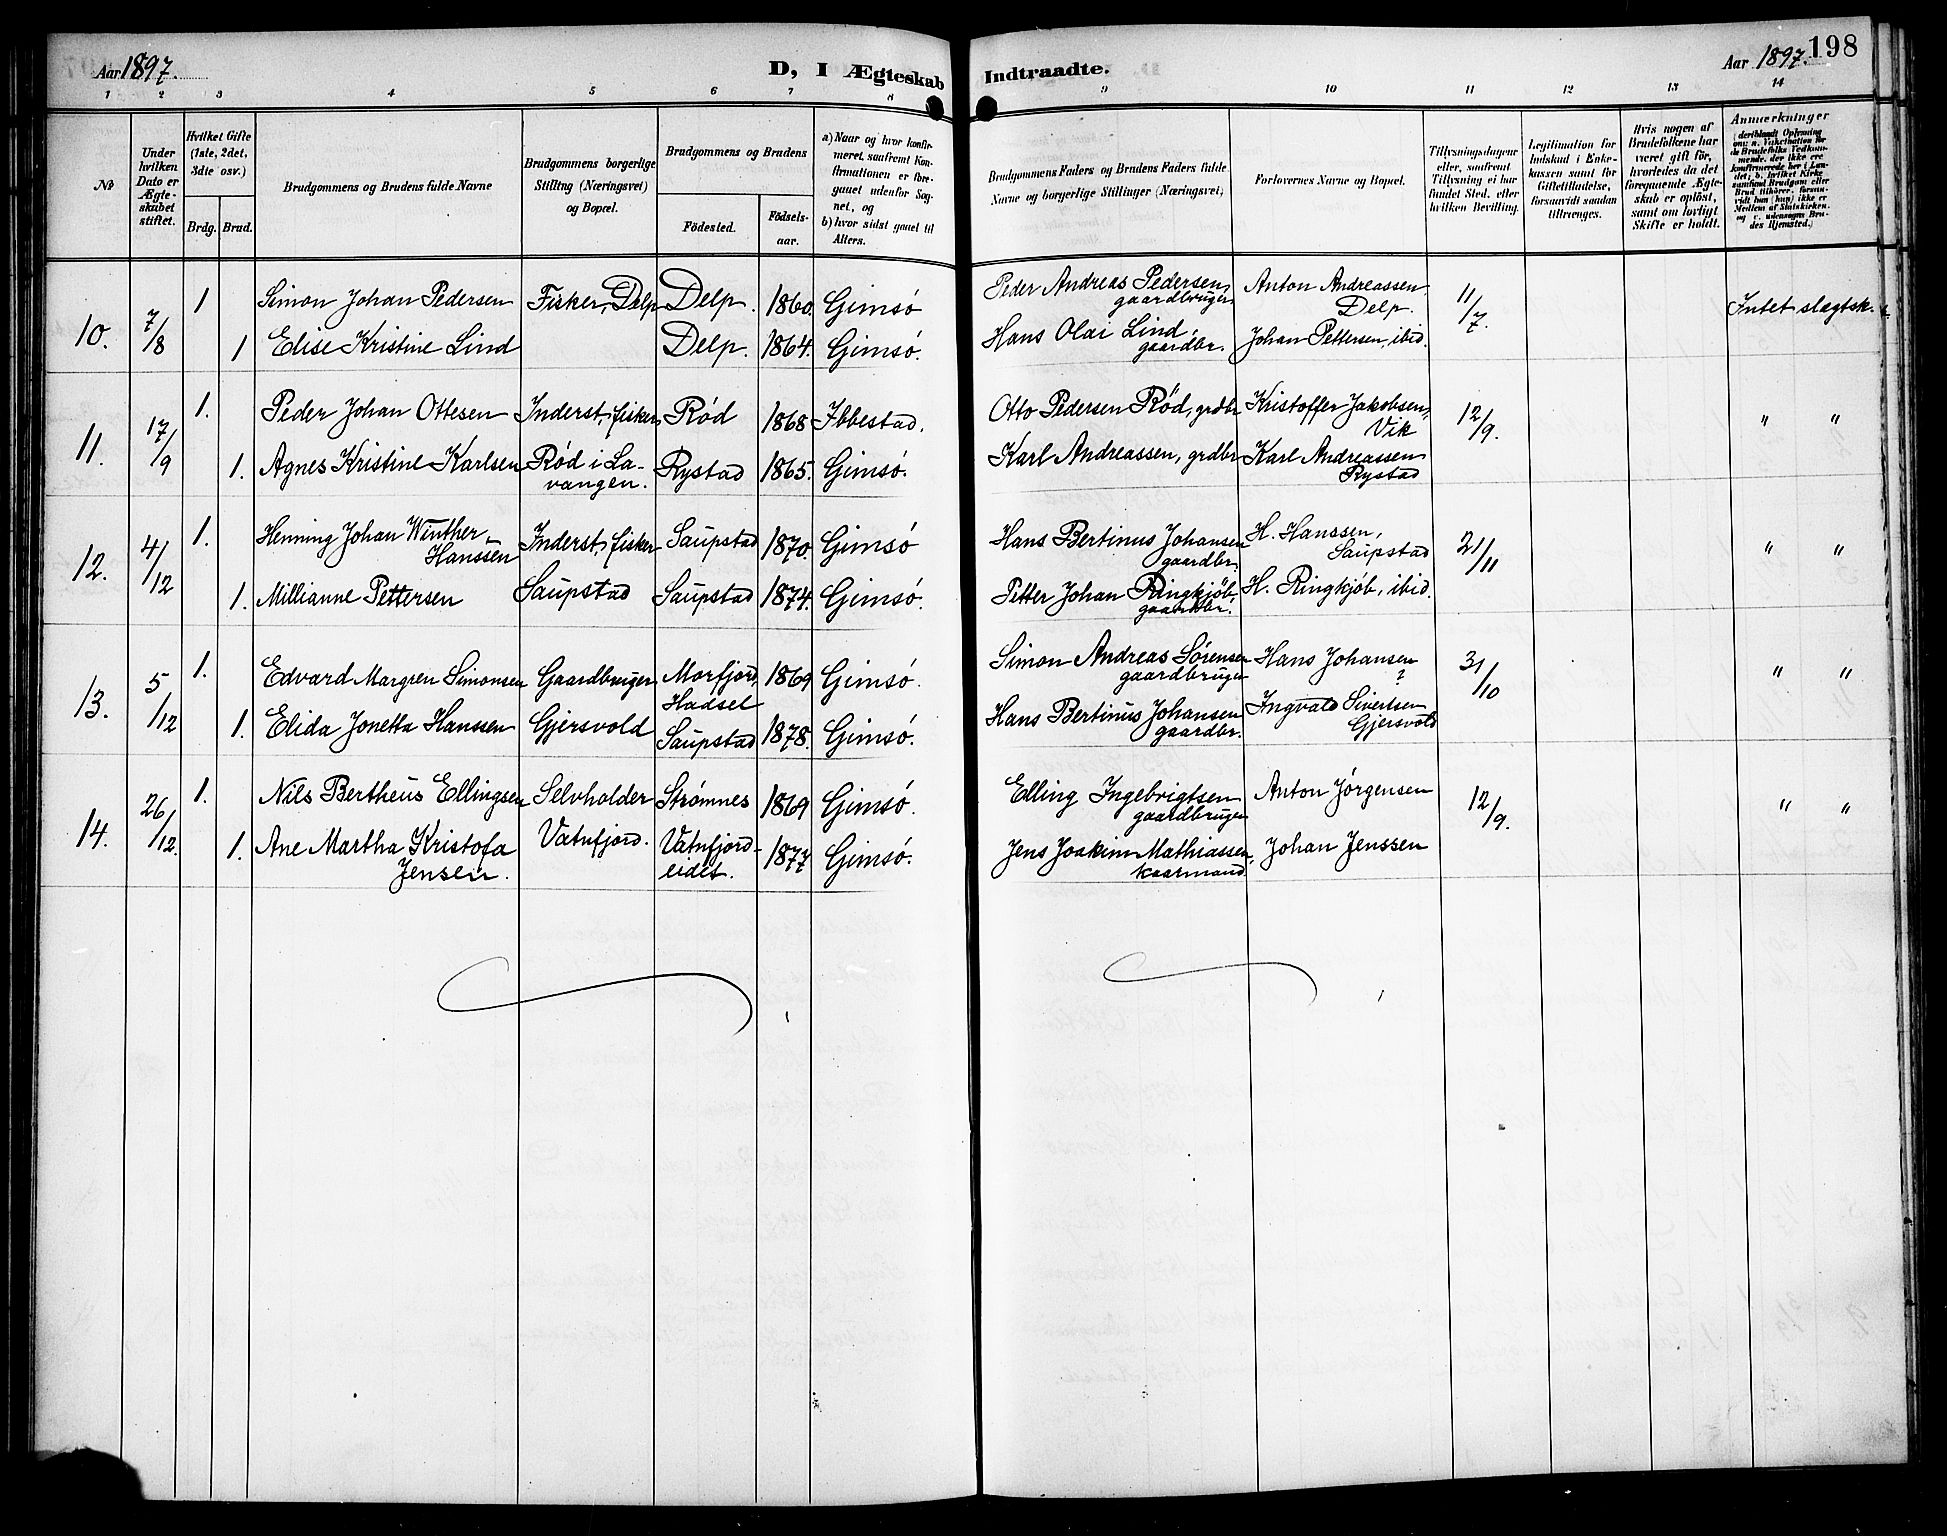 Aar 1897.
D, I Ægteskab Indtraadte.
Aar 1897.
198
1 2 3 4 5 6 7 8 9 10 11 12 13 14
No
Under hvilken Dato er Ægteskabet stiftet.
Hvilket Gifte (1ste, 2det, 3die osv.)
Brdg. Brud.
Brudgommens og Brudens fulde Navne
Brudgommens borgerlige Stilling (Næringsvei) og Bopæl.
Brudgommens og Brudens
Fødested.
Fødselsaar.
a) Naar og hvor konfirmeret, saafremt Konfirmationen er foregaaet udenfor Sognet, og
b) hvor sidst gaaet til Alters.
Brudgommens Faders og Brudens Faders fulde Navne og borgerlige Stillinger (Næringsvei)
Forlovernes Navne og Bopæl.
Tillysningsdagene eller, saafremt Tillysning ei har fundet Sted, efter hvilken Bevilling.
Legitimation for Indskud i Enkekassen samt for Giftetilladelse, forsaavidt saadan tiltrænges.
Hvis nogen af Brudefolkene har været gift før, hvorledes da det foregaaende Ægteskab er opløst, samt om lovligt Skifte er holdt.
Anmærkninger
10. 7/8 1 Simon Johan Pedersen Fisker, Delp Delp. 1860. Gimsö Peder Andreas Pedersen, gaardbruger Anton Andreassen, Delp. 11/7. Intet slagtsk.
1 Elise Kristine Lind Delp. 1864. Gimsö. Hans Olai Lind, gaardbr. Johan Pettersen, ibid.
11. 17/9 1. Peder Johan Ottesen Inderst, fisker Rød 1868 Ibbestad. Otto Pedersen Röd, grdbr Kristoffer Jakobsen, Vik 12/9. " "
1. Agnes Kristine Karlsen Rød i Lavangen. Rystad 1865. Gimsö. Karl Andreassen, grdbr Karl Andreassen Rystad
12. 4/12 1. Henning Johan Winther Hanssen Inderst, fisker Saupstad 1870. Gimsö Hans Bertinus Johansen gaardbr. H. Hanssen, Saupstad 21/11 " "
1. Millianne Pettersen Saupstad Saupstad 1874. Gimsö. Petter Johan Ringkjöb, gaardbr. H. Ringkjöb, ibid.
13. 5/12 1. Edvard Margren Simonsen Gaardbruger Morfjord, Hadsel 1869 Gimsö. Simon Andreas Sörensen gaardbruger Hans Johansen ? 31/10 " "
1. Elida Jonetta Hanssen Gjersvold Saupstad 1878. Gimsö. Hans Bertinus Johansen gaardbr. Ingvald Sivertsen Gjersvold
14. 26/12. 1. Nils Bertheus Ellingsen Selvholder Strømnes 1869 Gimsö. Elling Ingebrigtsen gaardbruger Anton Jørgensen 12/9. " "
1. Ane Martha Kristofa Jensen. Vatnfjord. Vatnfjordeidet. 1877 Gimsö. Jens Joakim Mathiassen, kaarmand Johan Jenssen